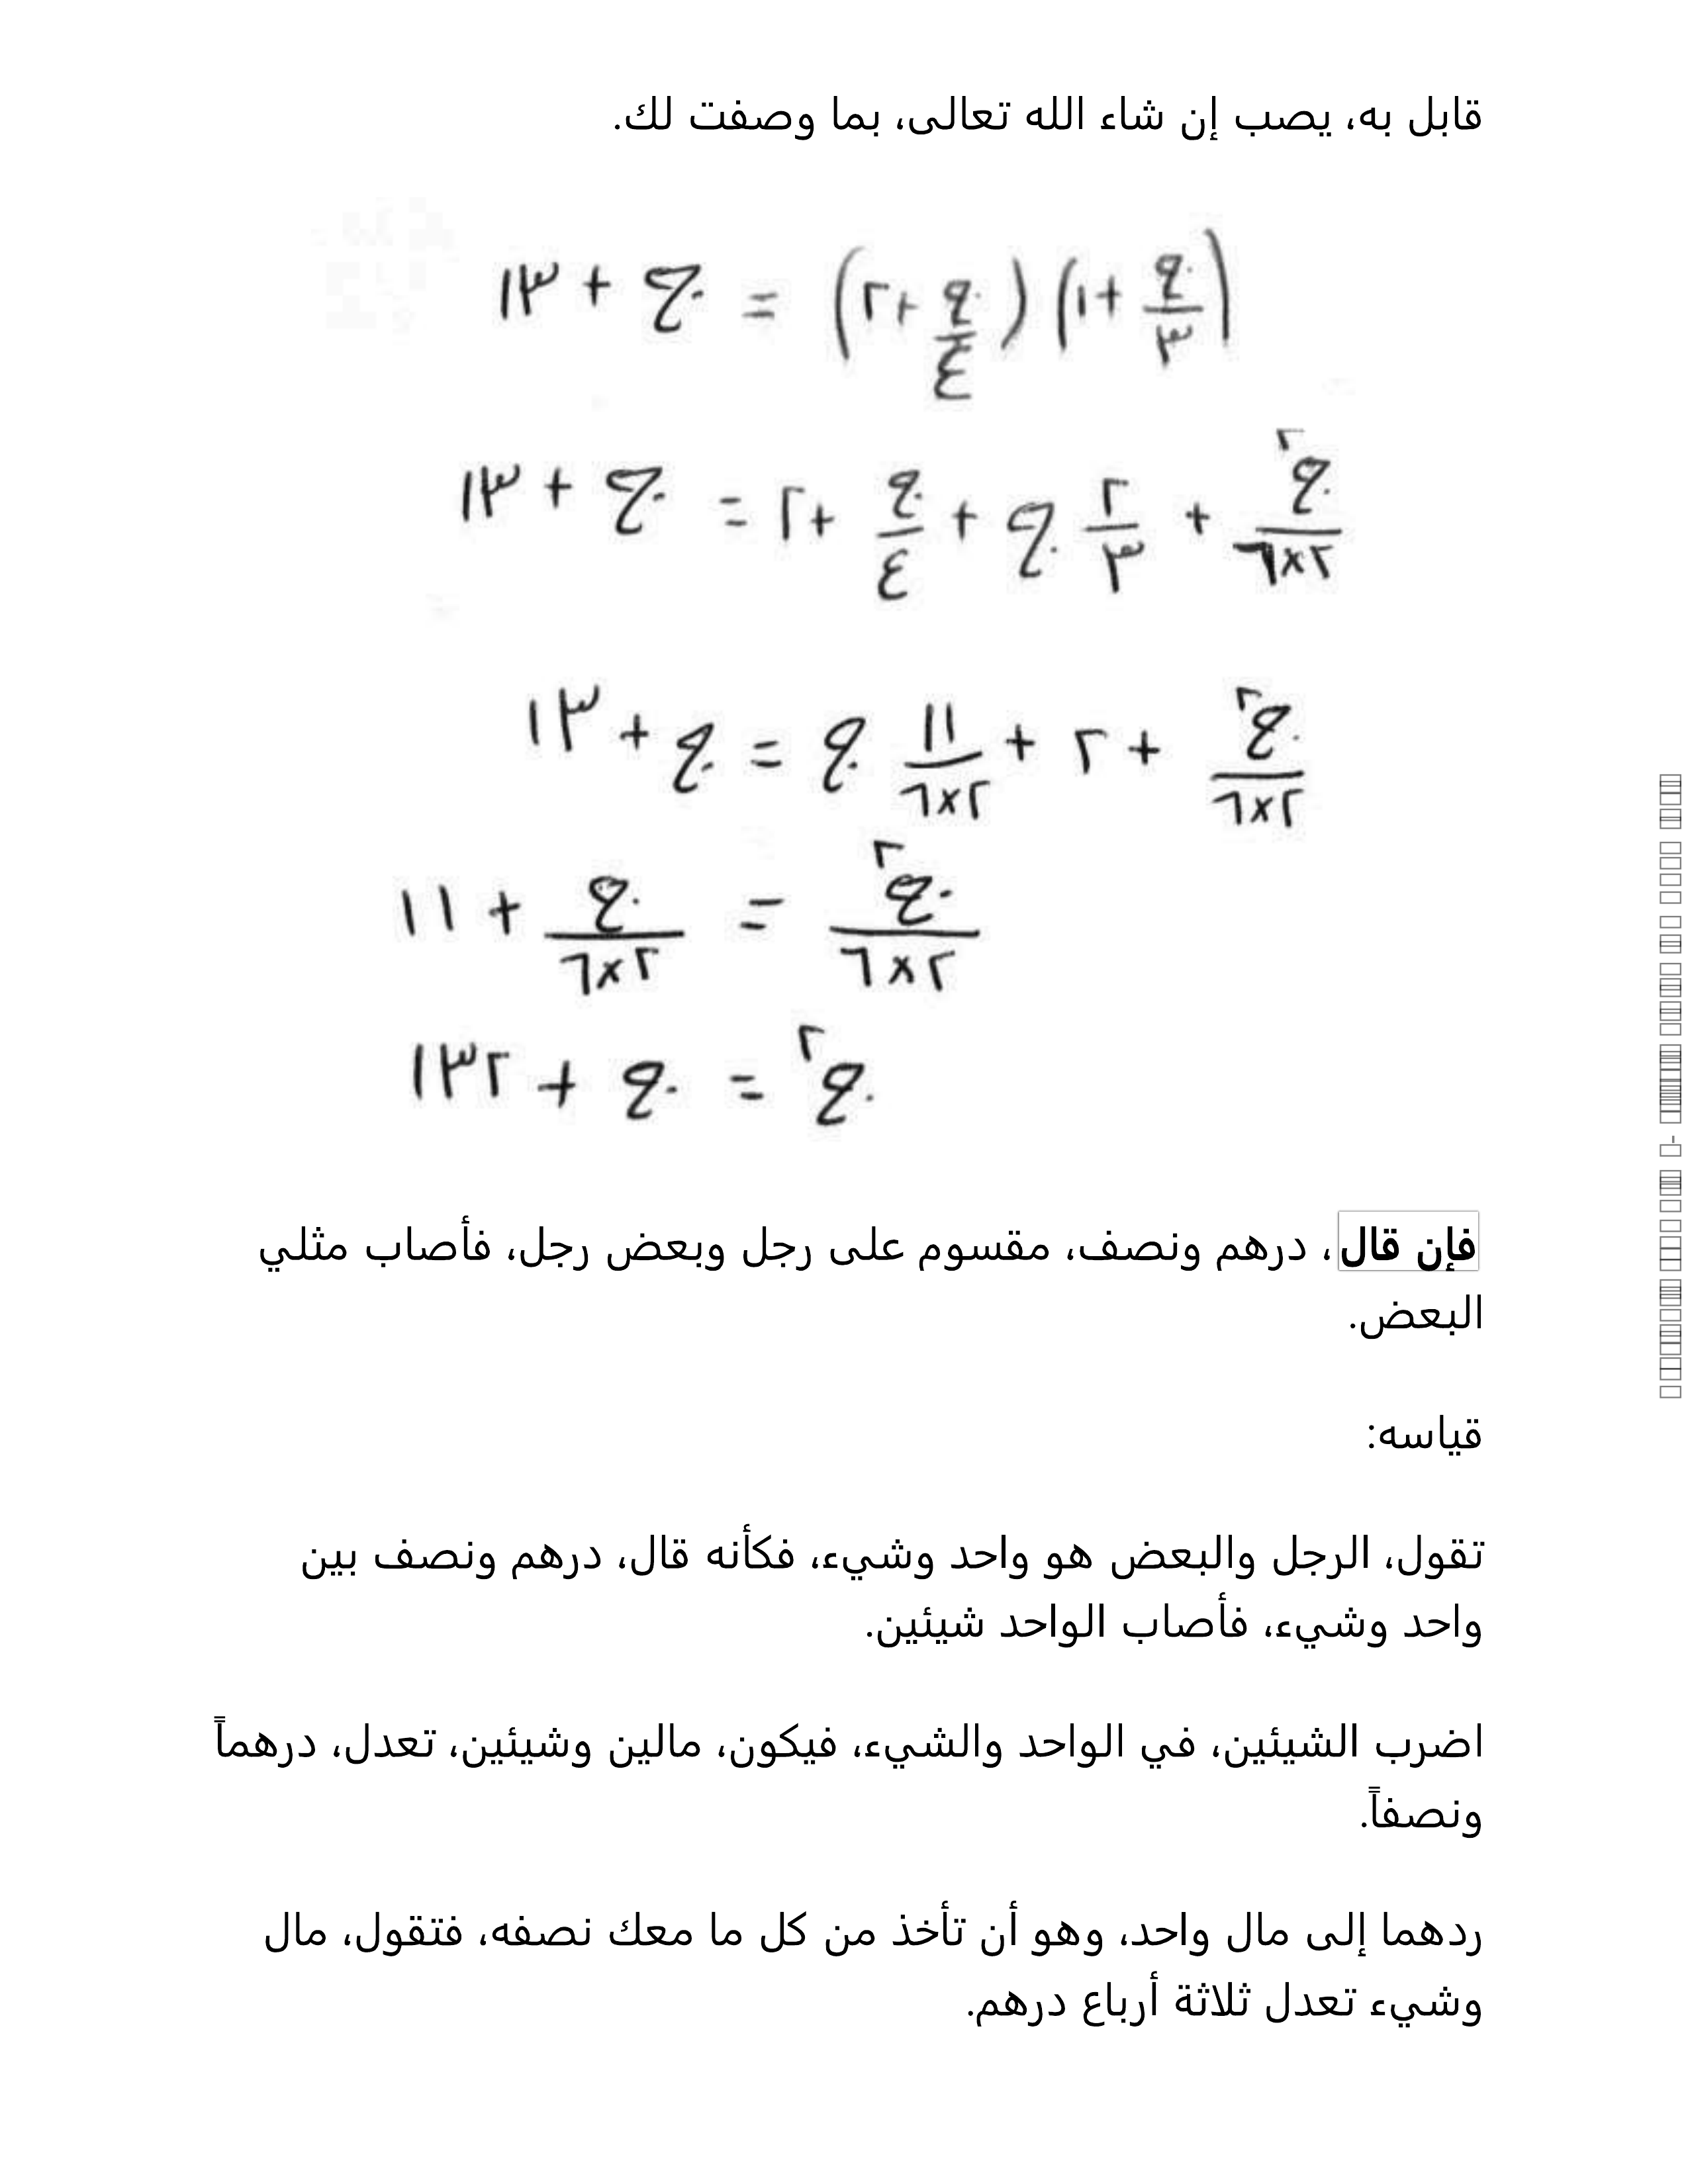 قابل به، يصب إن شاء الله تعالى، بما وصفت لك.
(ج/٣ + ١) (ج/٤ + ٢) = ج + ١٣
ج^٢/(٢×٦) + ٢/٣ ج + ج/٤ + ٢ = ج + ١٣
ج^٢/(٢×٦) + ٢ + ١١/(٢×٦) ج = ج + ١٣
ج^٢/(٢×٦) = ج/(٢×٦) + ١١
ج^٢ = ج + ١٣٢
فإن قال، درهم ونصف، مقسوم على رجل وبعض رجل، فأصاب مثلي
البعض.
قياسه:
تقول، الرجل والبعض هو واحد وشيء، فكأنه قال، درهم ونصف بين
واحد وشيء، فأصاب الواحد شيئين.
اضرب الشيئين، في الواحد والشيء، فيكون، مالين وشيئين، تعدل، درهماً
ونصفاً.
ردهما إلى مال واحد، وهو أن تأخذ من كل ما معك نصفه، فتقول، مال
وشيء تعدل ثلاثة أرباع درهم.